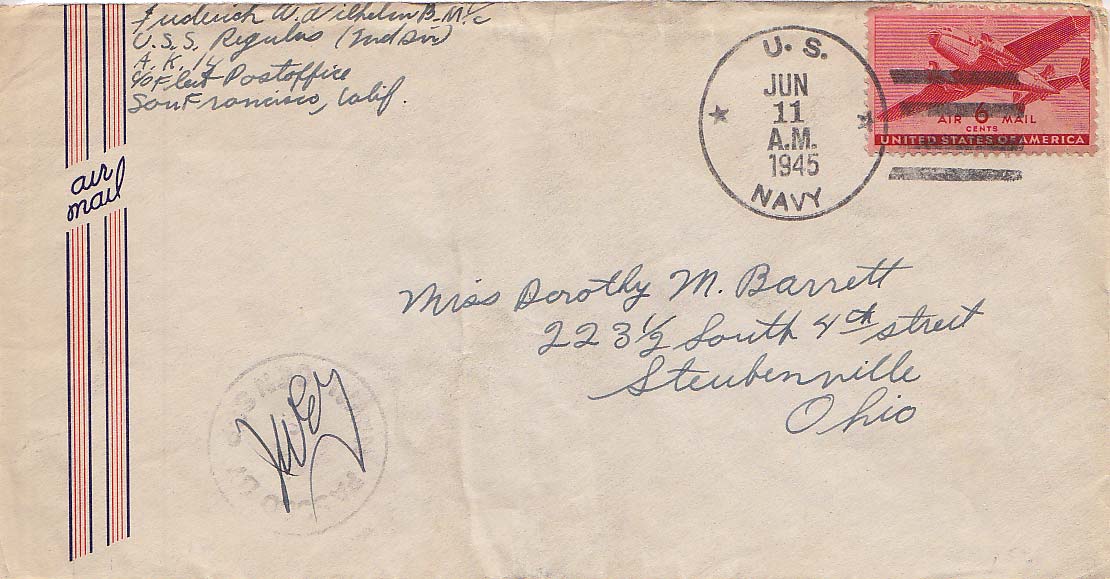 Frederick W. Wilhelm B.M.1/c
U.S.S. Regulus (2nd Div)
A.K. 14
c/o Fleet Postoffice
San Francisco, Calif.
air
mail
U. S.
JUN
11
A.M.
1945
NAVY
AIR 6 MAIL
CENTS
UNITED STATES OF AMERICA
Miss Dorothy M. Barrett
223 1/2 South 4th street
Steubenville
Ohio
PASSED BY